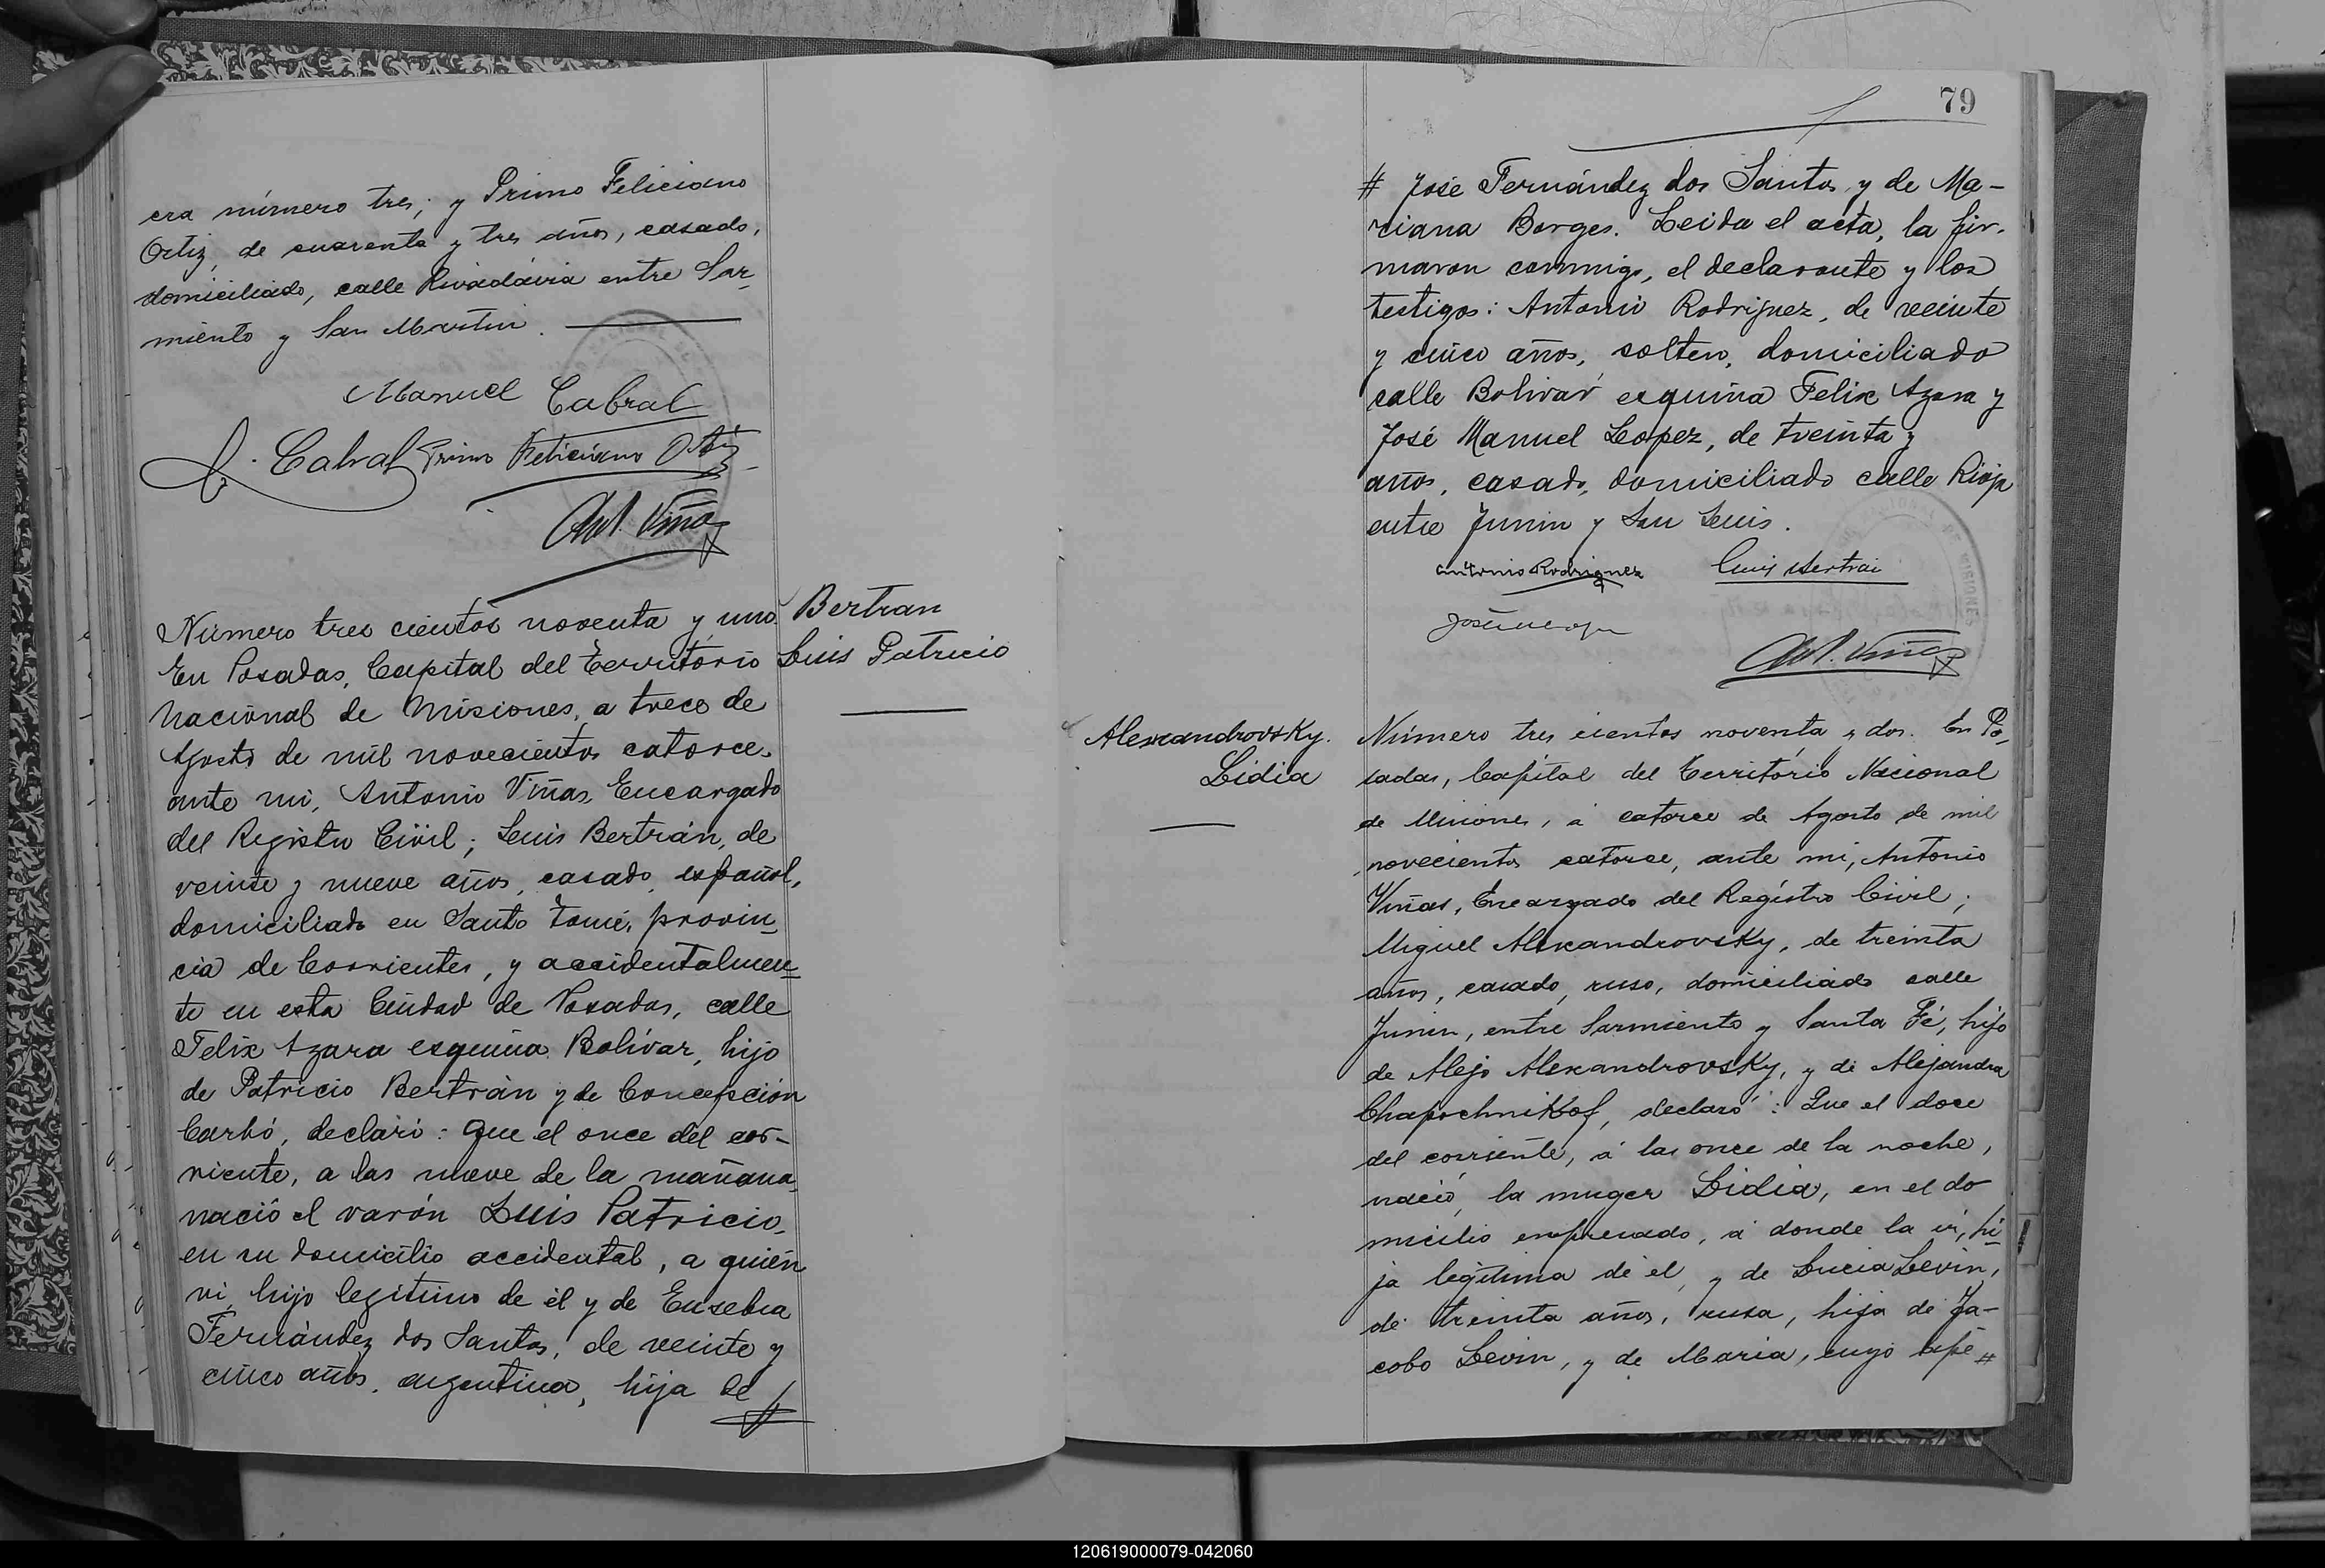 era número tres; y Primo Feliciano
Ortiz, de cuarenta y tres años, casado,
domiciliado, calle Rivadávia entre Sar_
miento y San Martin.
Manuel Cabral
Cabral Primo Feliciano Ortiz
Ant. Viñas
Número tres cientos noventa y uno.
En Posadas, Capital del Territorio
Nacional de Misiones, a trece de
Agosto de mil novecientos catorce,
ante mi, Antonio Viñas, Encargado
del Registro Civil; Luis Bertrán, de
veinte y nueve años, casado, español,
domiciliado en Santo Tomé, provin_
cia de Corrientes, y accidentalmen_
te en esta Ciudad de Posadas, calle
Felix Azara esquina Bolívar, hijo
de Patricio Bertrán y de Concepción
Carbó, declaró: que el once del cor-
riente, a las nueve de la mañana,
nació el varón Luis Patricio,
en su domicilio accidental, a quién
vi, hijo legítimo de él y de Eusebia
Fernández dos Santos, de veinte y
cinco años, argentina, hija de #
Bertran
Luis Patricio
79
# José Fernández dos Santos y de Ma-
riana Borges. Leida el acta, la fir-
maron conmigo, el declarante y los
testigos: Antonio Rodriguez, de veinte
y cinco años, soltero, domiciliado
calle Bolivar esquina Felix Azara y
José Manuel Lopez, de treinta y
años, casado, domiciliado calle Rioja
entre Junin y San Luis.
Antonio Rodriguez Luis Bertran
Ant. Viñas
Alexandrovsky.
Lidia
Número tres cientos noventa y dos. En Po_
sadas, Capital del Território Nacional
de Misiones, á catorce de Agosto de mil
novecientos catorce, ante mi, Antonio
Viñas, Encargado del Registro Civil;
Miguel Alexandrovsky, de treinta
años, casado, ruso, domiciliado calle
Junin, entre Sarmiento y Santa Fé, hijo
de Alejo Alexandrovsky, y de Alejandra
Chapochnikof, declaró: Que el doce
del corriente, á las once de la noche,
nació, la muger Lidia, en el do
micilio expresado, á donde la vi, hi_
ja legítima de el, y de Lucia Levin,
de treinta años, rusa, hija de Ja-
cobo Levin, y de Maria, cuyo apé #
120619000079-042060